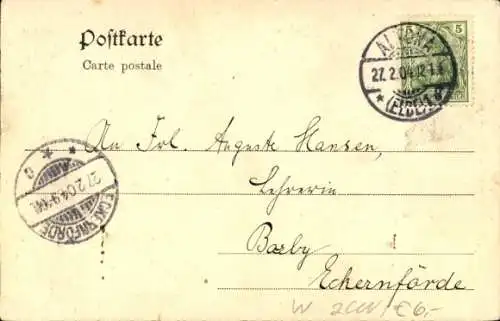 Postkarte
Carte postale
5
ALTONA
27.2.04.12-1
* (ELBE) 1 g
An Frl. Auguste Hansen,
Lehrerin
Borby
Eckernförde
* * c
27.2.04.9-
ECKERNFÖRDE
W €6,-